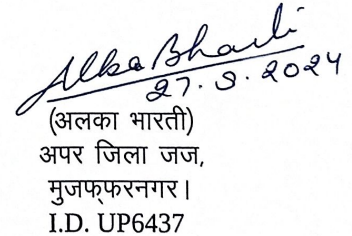 Alka Bharti
27.5.2024
(अलका भारती)
अपर जिला जज,
मुजफ्फरनगर।
I.D. UP6437